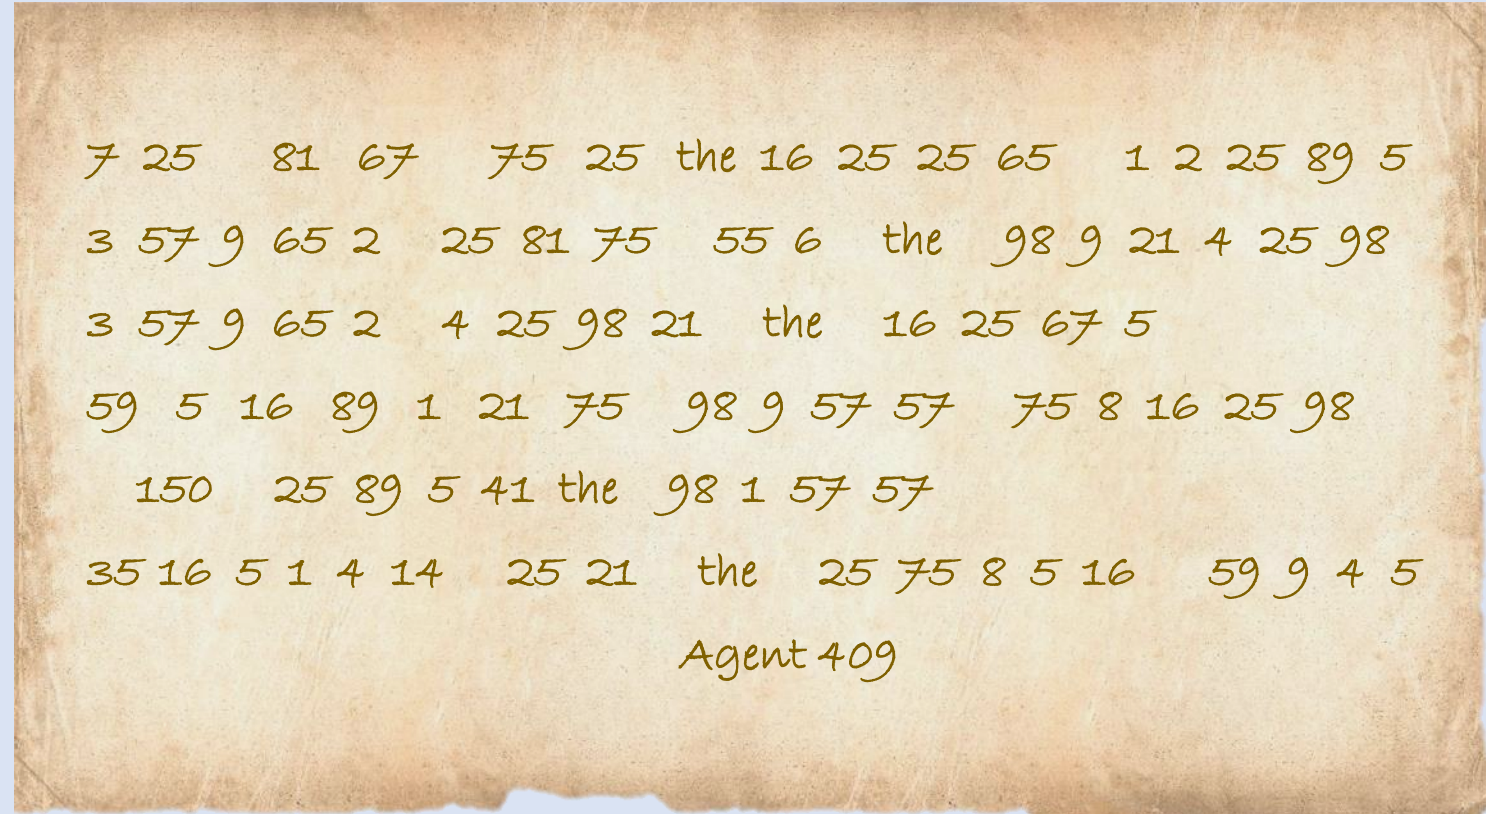 7 25 81 67 75 25 the 16 25 25 65 1 2 25 89 5
3 57 9 65 2 25 81 75 55 6 the 98 9 21 4 25 98
3 57 9 65 2 4 25 98 21 the 16 25 67 5
59 5 16 89 1 21 75 98 9 57 57 75 8 16 25 98
150 25 89 5 41 the 98 1 57 57
35 16 5 1 4 14 25 21 the 25 75 8 5 16 59 9 4 5
Agent 409